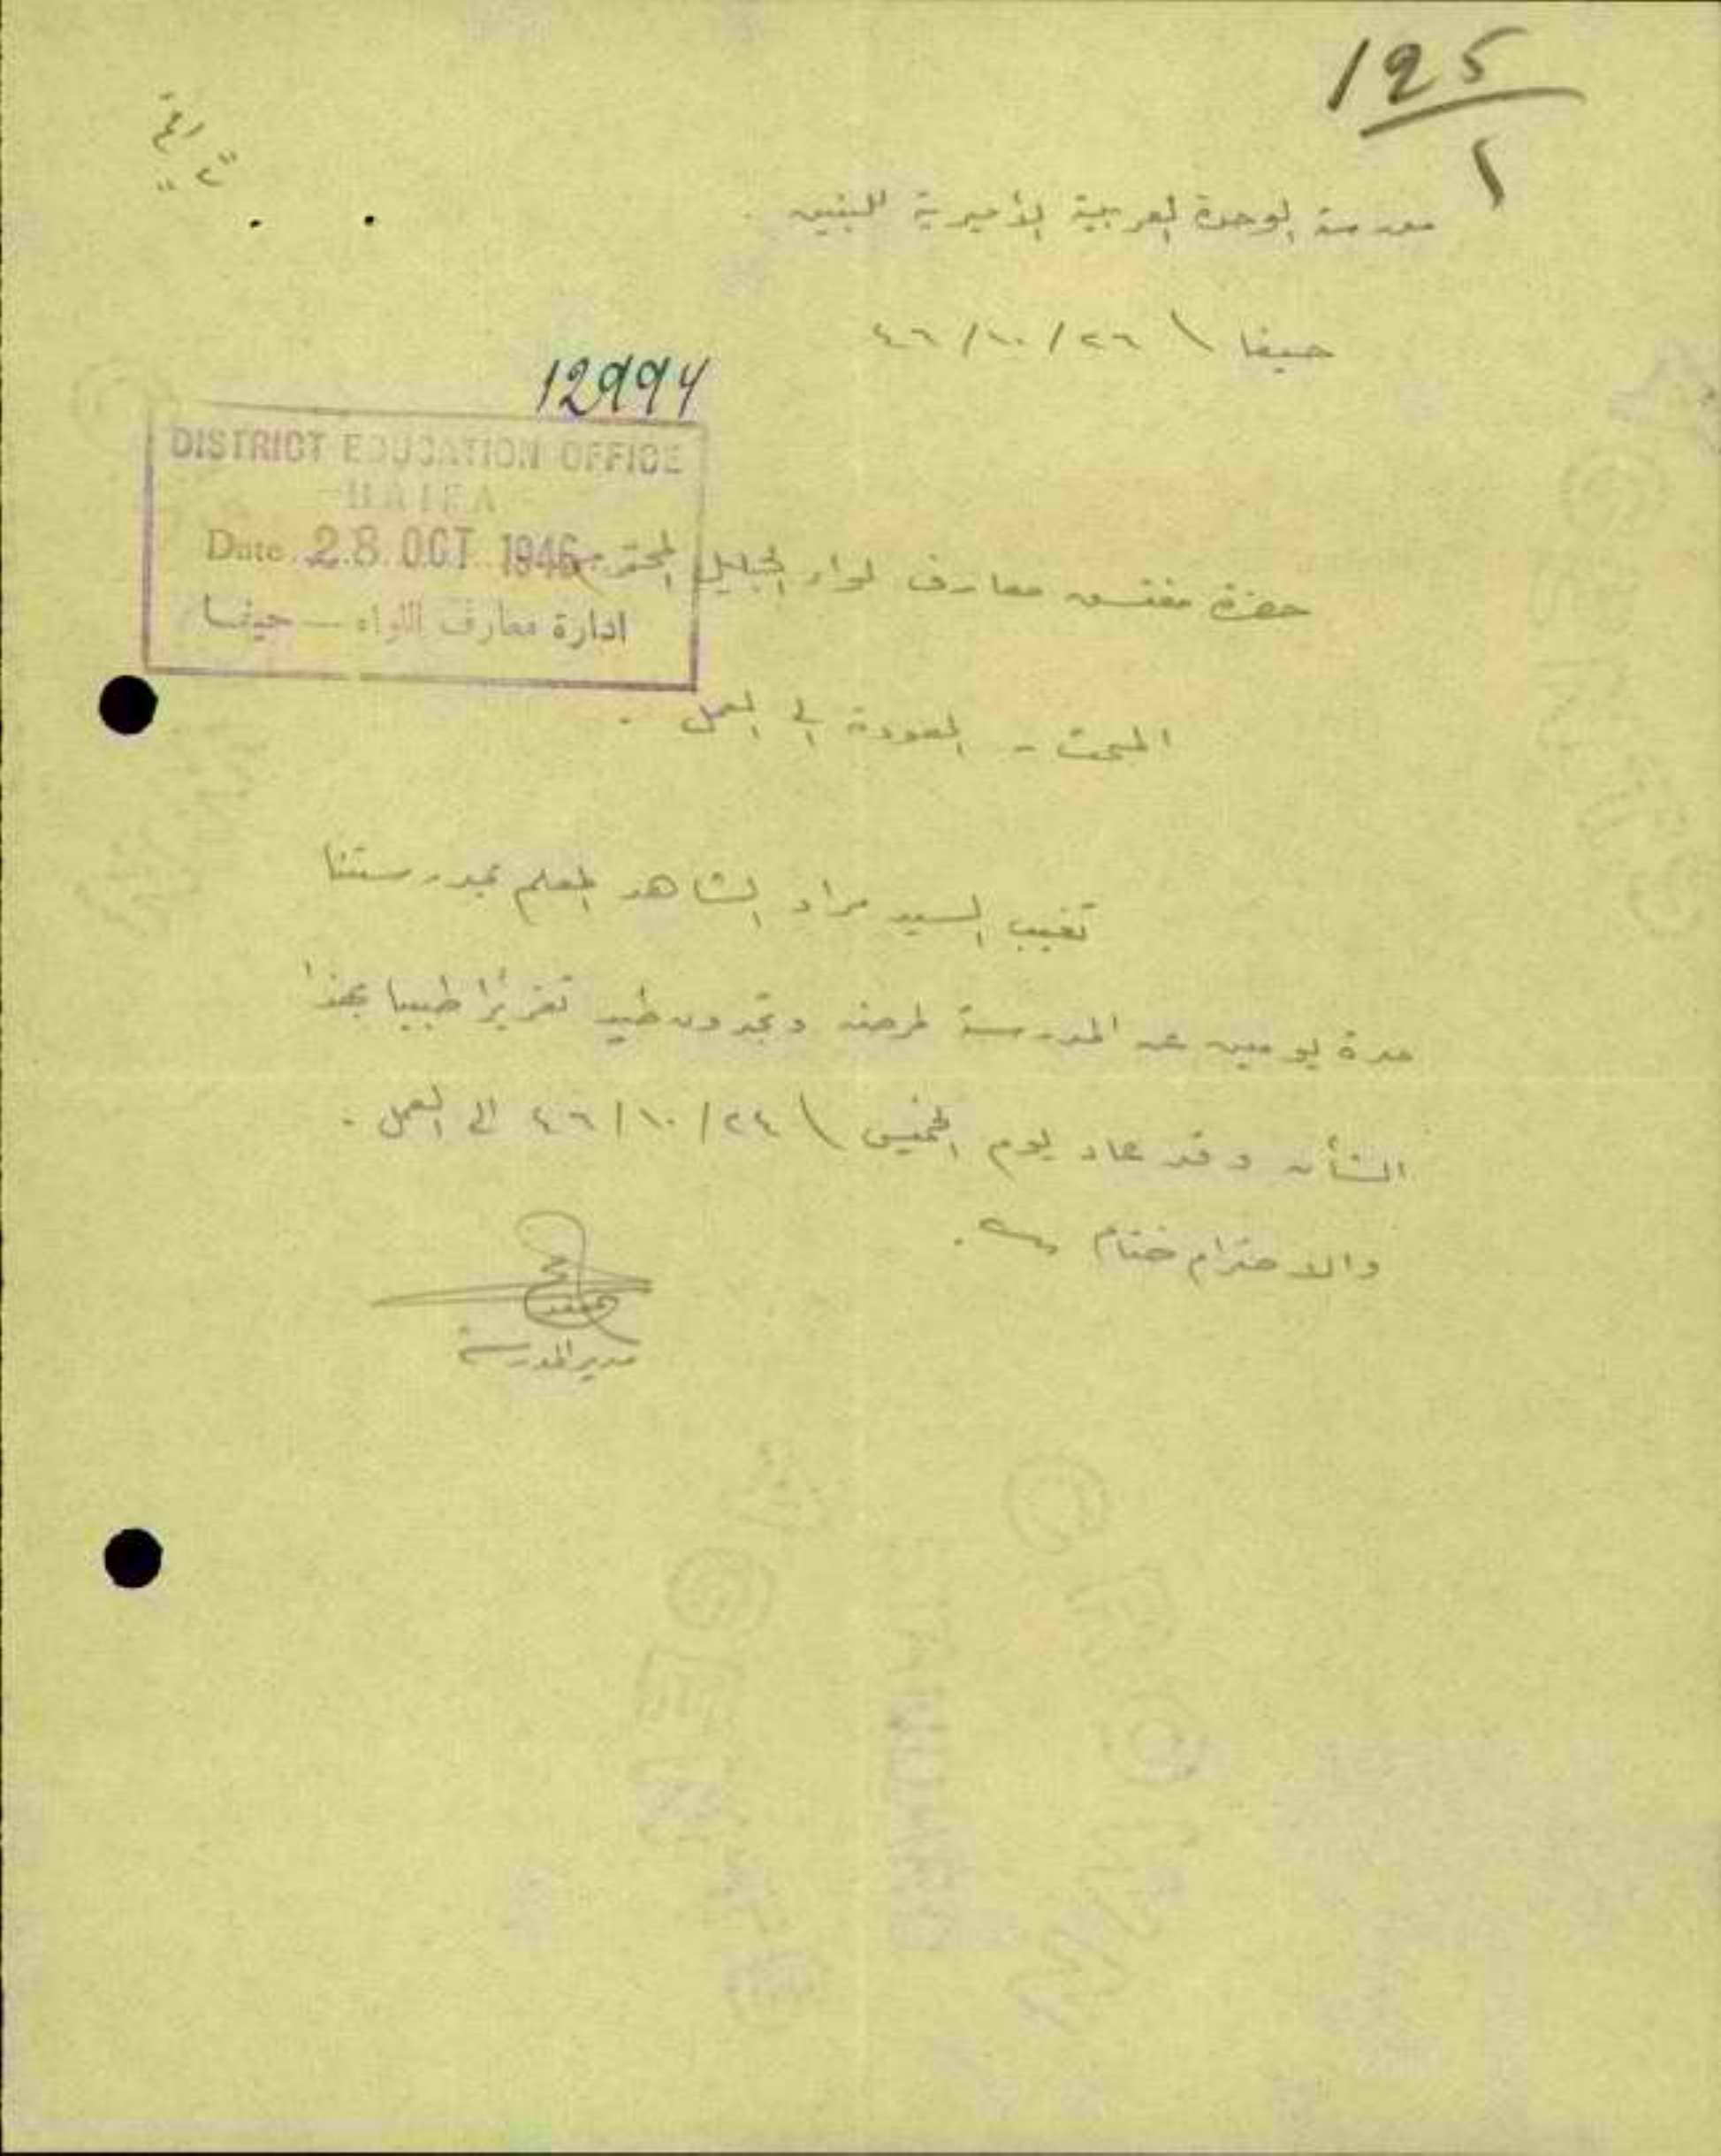 125
١
مدرسة الوحدة العربية الأميرية للبنين .
حيفا \ ٢٦/١٠/٤٦
12994
DISTRICT EDUCATION OFFICE
-HAIFA-
Date. 28 OCT 1946
ادارة معارف اللواء — حيفا
حضرة مفتش معارف لواء الجليل المحترم
المبحث - العودة الى العمل .
تغيب السيد مراد الشاهد المعلم بمدرستنا
مدة يومين عن المدرسة لمرضه وتجدون طيه تقريرًا طبيا بهذا
الشأن وقد عاد يوم الخميس \ ٢٤/١٠/٤٦ الى العمل .
والاحترام ختام
مدير المدرسة